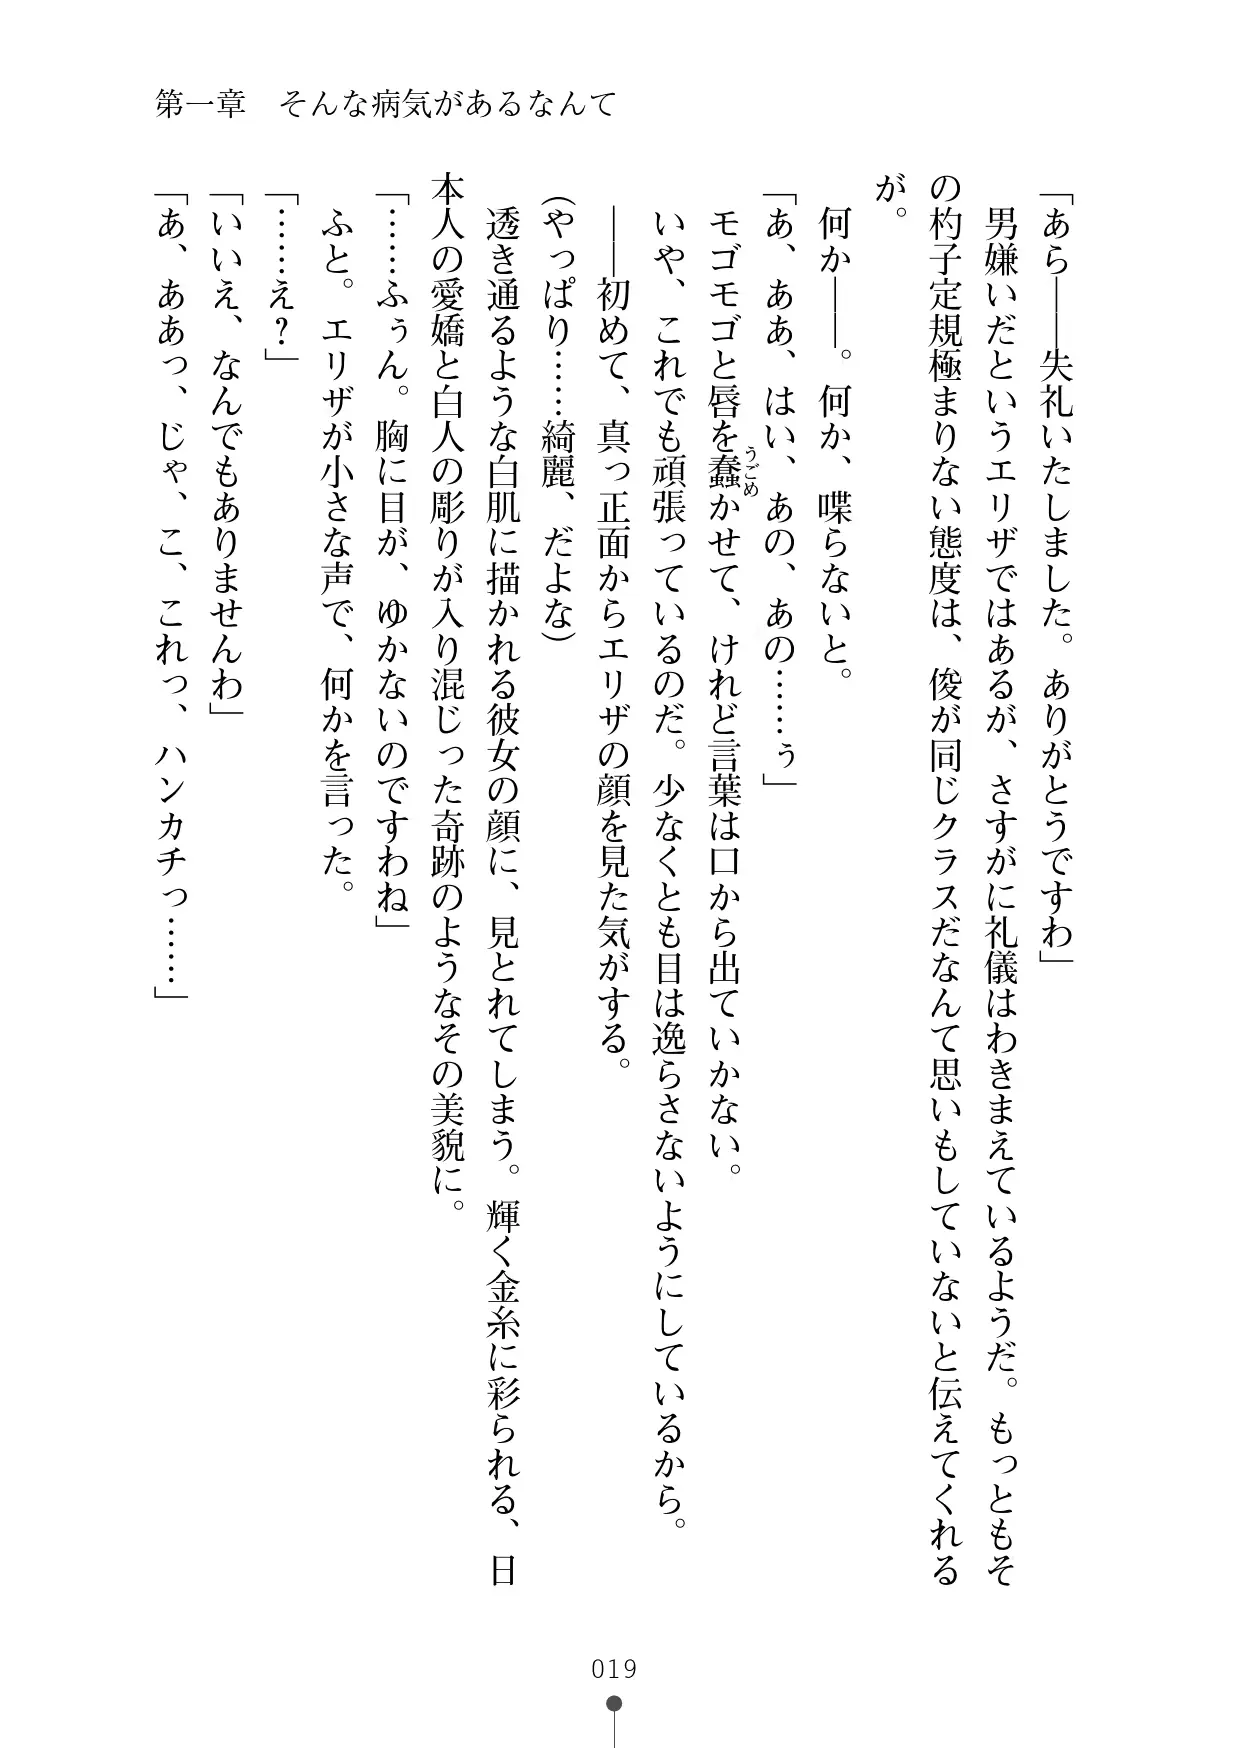 第一章　そんな病気があるなんて
「あら――失礼いたしました。ありがとうですわ」
　男嫌いだというエリザではあるが、さすがに礼儀はわきまえているようだ。もっともそ
の杓子定規極まりない態度は、俊が同じクラスだなんて思いもしていないと伝えてくれる
が。
　何か――。何か、喋らないと。
「あ、ああ、はい、あの、あの……ぅ」
　モゴモゴと唇を蠢かせて、けれど言葉は口から出ていかない。
うごめ
　いや、これでも頑張っているのだ。少なくとも目は逸らさないようにしているから。
　――初めて、真っ正面からエリザの顔を見た気がする。
（やっぱり……綺麗、だよな）
　透き通るような白肌に描かれる彼女の顔に、見とれてしまう。輝く金糸に彩られる、日
本人の愛嬌と白人の彫りが入り混じった奇跡のようなその美貌に。
「……ふぅん。胸に目が、ゆかないのですわね」
　ふと。エリザが小さな声で、何かを言った。
「……え？」
「いいえ、なんでもありませんわ」
「あ、ああっ、じゃ、こ、これっ、ハンカチっ……」
019